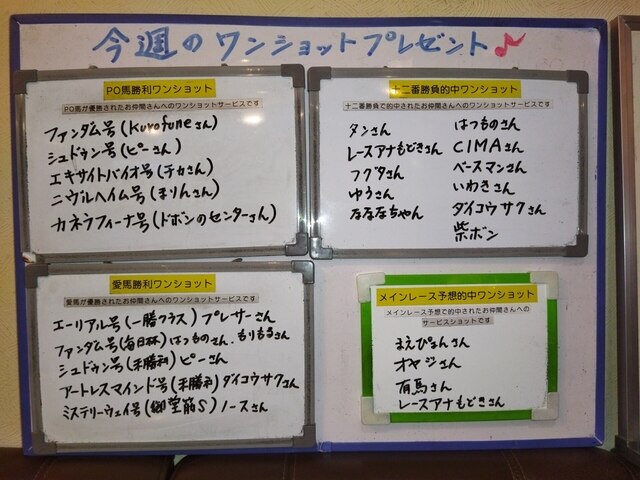 今週のワンショットプレゼント♪
PO馬勝利ワンショット
PO馬が優勝されたお仲間さんへのワンショットサービスです
ファンダム号(Kurofuneさん)
シュドゥン号(ピーさん)
エキサイトバイオ号(チカさん)
ニヴルヘイム号(まりんさん)
カネラフィーナ号(ドボンのセンターさん)
十二番勝負的中ワンショット
十二番勝負で的中されたお仲間さんへのワンショットサービスです
タンさん
レースアナもどきさん
フクタさん
ゆうさん
なななちゃん
はつものさん
CIMAさん
ベースマンさん
いわきさん
ダイコウサクさん
柴ボン
愛馬勝利ワンショット
愛馬が優勝されたお仲間さんへのワンショットサービスです
エーリアル号(一勝クラス)プレサーさん
ファンダム号(毎日杯)はつものさん、もりもるさん
シュドゥン号(未勝利)ピーさん
アートレスマインド号(未勝利)ダイコウサクさん
ミステリーウェイ号(御堂筋S)ノースさん
メインレース予想的中ワンショット
メインレース予想で的中されたお仲間さんへの
サービスショットです
まえぴんさん
オヤジさん
有馬さん
レースアナもどきさん